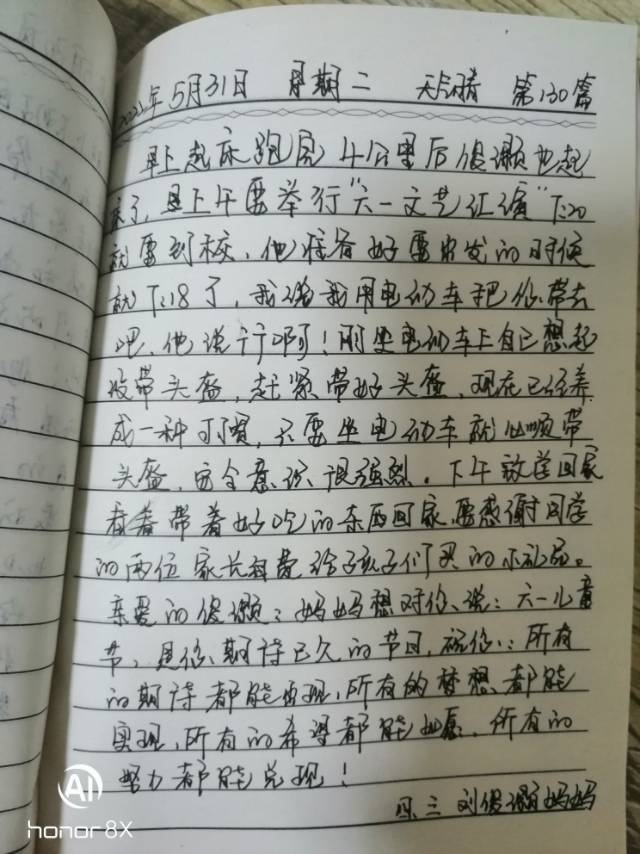 2022年5月31日 星期二 天气晴 第130篇
早上起床跑完4公里后俊灏也起
床了,是上午要举行“六一文艺汇演”7:20
就要到校、他准备好要出发的时候
就7:18了,我说我用电动车把你带去
吧、他说行啊!刚坐电动车上自己想起
没带头盔,赶紧带好头盔、现在已经养
成一种习惯,只要坐电动车就必须带
头盔、安全意识很强烈。下午放学回家
看着带着好吃的东西回家、要感谢同学
的两位家长科费给孩子们买的小礼品。
亲爱的俊灏:妈妈想对你说:六一儿童
节,是你期待已久的节日,祝你:所有
的期待都能出现,所有的梦想都能
实现、所有的希望都能如愿、所有的
努力都能兑现!
四.三 刘俊灏妈妈
AI
honor 8X